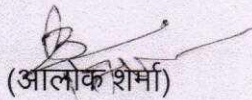 (आलोक शर्मा)